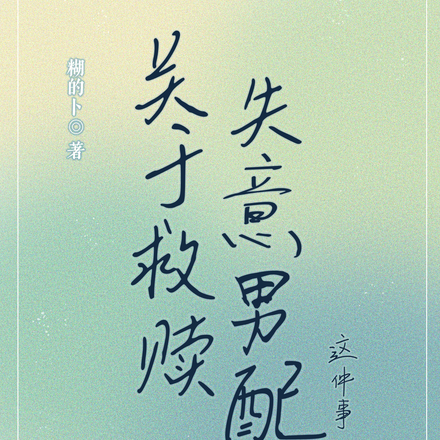 关于救赎
失意男配
这件事
糊的卜◎著